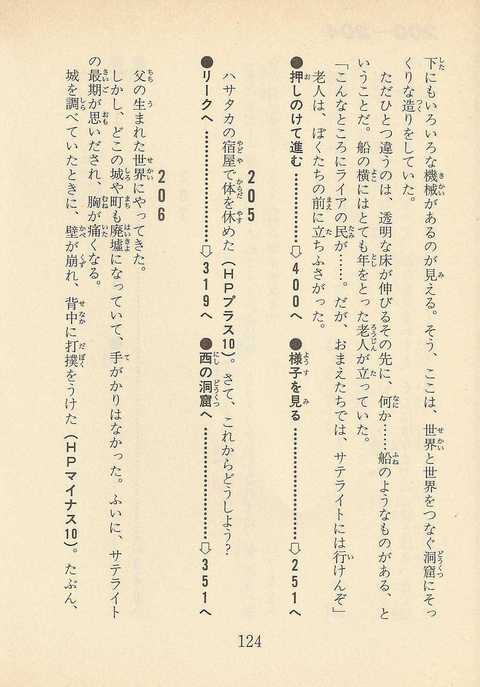 下にもいろいろな機械があるのが見える。そう、ここは、世界と世界をつなぐ洞窟にそっ
くりな造りをしていた。
ただひとつ違うのは、透明な床が伸びるその先に、何か……船のようなものがある、と
いうことだ。船の横にはとても年をとった老人が立っていた。
「こんなところにライアの民が……。だが、おまえたちでは、サテライトには行けんぞ」
老人は、ぼくたちの前に立ちふさがった。
●押しのけて進む…………⇨400へ ●様子を見る…………⇨251へ
205
ハサタカの宿屋で体を休めた(HPプラス10)。さて、これからどうしよう?
●リークへ…………⇨319へ ●西の洞窟へ…………⇨351へ
206
父の生まれた世界にやってきた。
しかし、どこの城や町も廃墟になっていて、手がかりはなかった。ふいに、サテライト
の最期が思いだされ、胸が痛くなる。
城を調べていたときに、壁が崩れ、背中に打撲をうけた(HPマイナス10)。たぶん、
124